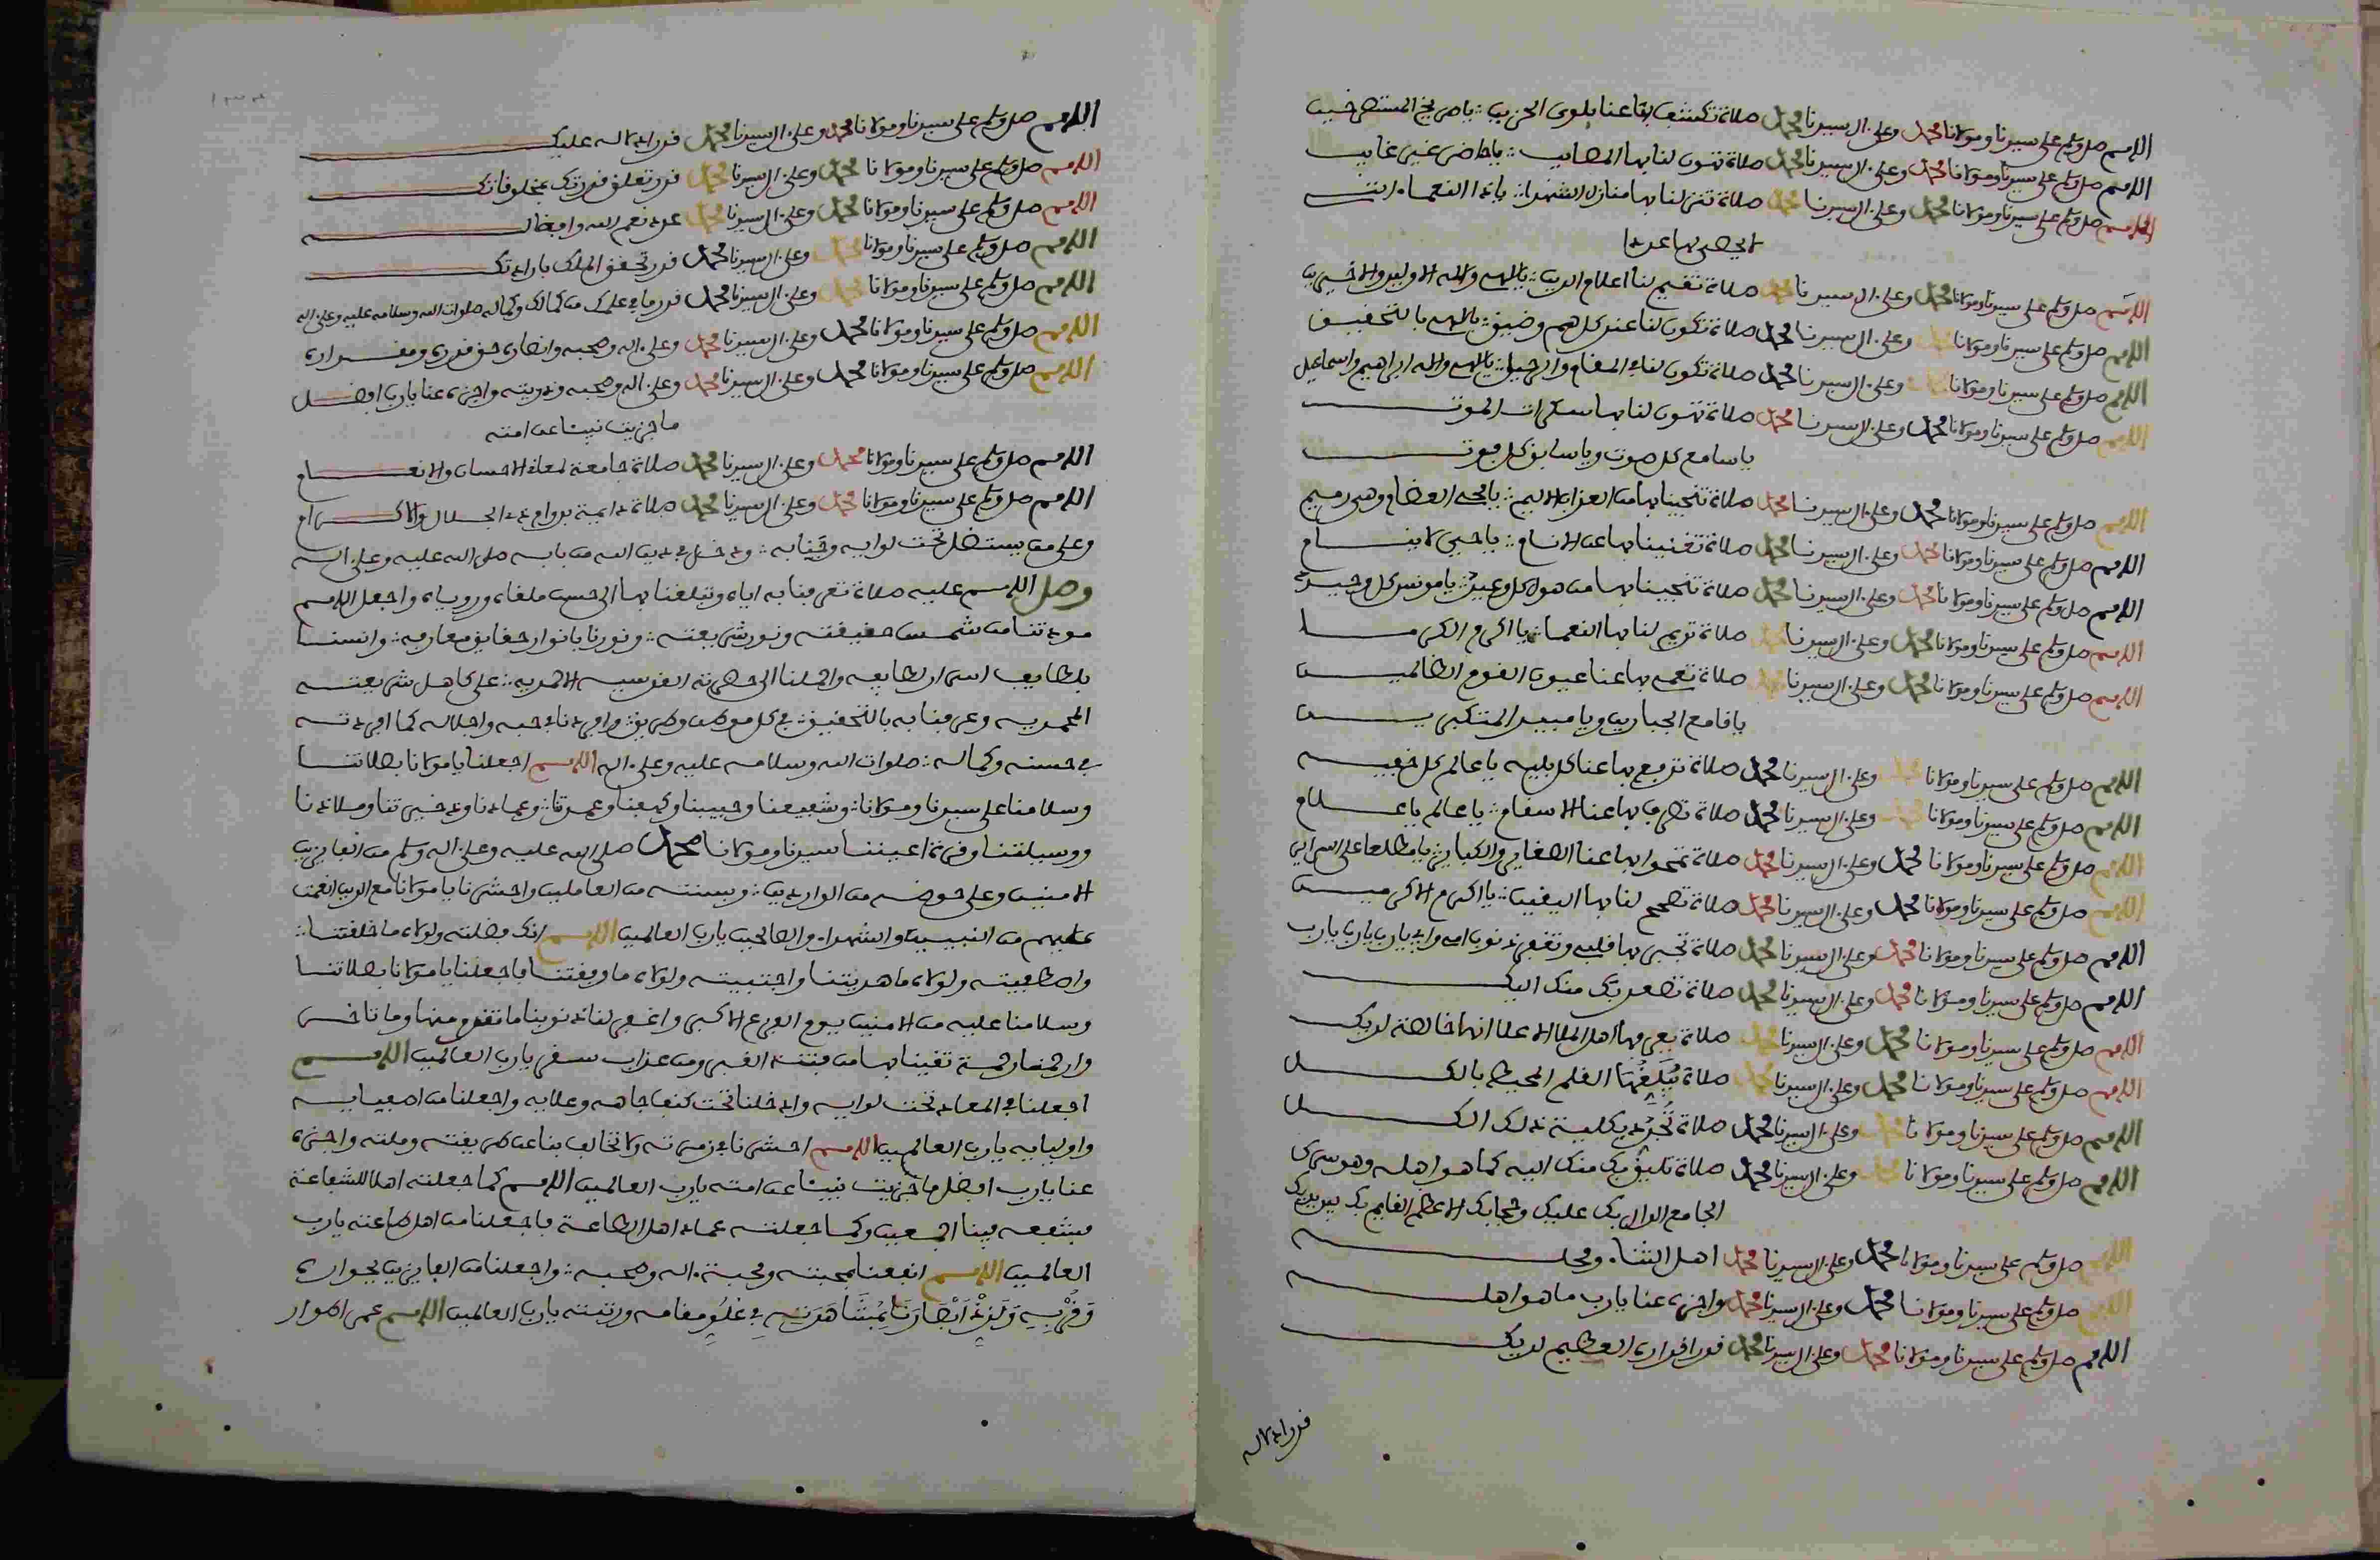 اللهم صل وسلم على سيدنا ومولانا محمد وعلى ال سيدنا محمد صلاة تكشف بها عنا بلوى الحزين يا صريخ المستصرخين
اللهم صل وسلم على سيدنا ومولانا محمد وعلى ال سيدنا محمد صلاة تهون لنا بها المصايب يا حاضر غير غايب
اللهم صل وسلم على سيدنا ومولانا محمد وعلى ال سيدنا محمد صلاة تنزلنا بها منازل الشهدا يا ذا النعماء التي
لا يحصى لها عددا
اللهم صل وسلم على سيدنا ومولانا محمد وعلى ال سيدنا محمد صلاة تقيم لنا اعلام الدين يا الهي واله الاولين والاخرين
اللهم صل وسلم على سيدنا ومولانا محمد وعلى ال سيدنا محمد صلاة تكون لنا عند كل هم وضيق يا الهي بالتحقيق
اللهم صل وسلم على سيدنا ومولانا محمد وعلى ال سيدنا محمد صلاة تكون لنا في المقام والرحيل يا الهي واله ابراهيم واسماعيل
اللهم صل وسلم على سيدنا ومولانا محمد وعلى ال سيدنا محمد صلاة تهون لنا بها سكرات الموت
يا سامع كل صوت ويا سابق كل فوت
اللهم صل وسلم على سيدنا ومولانا محمد وعلى ال سيدنا محمد صلاة تنجينا بها من العذاب الاليم يا محيي العظام وهي رميم
اللهم صل وسلم على سيدنا ومولانا محمد وعلى ال سيدنا محمد صلاة تغنينا بها عن الانام يا حيي لا ينام
اللهم صل وسلم على سيدنا ومولانا محمد وعلى ال سيدنا محمد صلاة تنجينا بها من هول كل وعيد يا مونس كل وحيد
اللهم صل وسلم على سيدنا ومولانا محمد وعلى ال سيدنا محمد صلاة تديم لنا بها النعما يا اكرم الكرما
اللهم صل وسلم على سيدنا ومولانا محمد وعلى ال سيدنا محمد صلاة تعمي بها عنا عيون القوم الظالمين
يا قامع الجبارين ويا مبيد المتكبرين
اللهم صل وسلم على سيدنا ومولانا محمد وعلى ال سيدنا محمد صلاة ترفع بها عنا كل بليه يا عالم كل خفيه
اللهم صل وسلم على سيدنا ومولانا محمد وعلى ال سيدنا محمد صلاة تصرف بها عنا الاسقام يا عالم يا علام
اللهم صل وسلم على سيدنا ومولانا محمد وعلى ال سيدنا محمد صلاة تمحوا بها عنا الصغاير والكباير يا مطلعا على السراير
اللهم صل وسلم على سيدنا ومولانا محمد وعلى ال سيدنا محمد صلاة تصحح لنا بها اليقين يا اكرم الاكرمين
اللهم صل وسلم على سيدنا ومولانا محمد وعلى ال سيدنا محمد صلاة تجبر بها قلبي وتغفر ذنوب امي وابي يا رب يا رب يا رب
اللهم صل وسلم على سيدنا ومولانا محمد وعلى ال سيدنا محمد صلاة تصعد بك منك اليك
اللهم صل وسلم على سيدنا ومولانا محمد وعلى ال سيدنا محمد صلاة يعرفها اهل الملا الاعلا انها خالصة لديك
اللهم صل وسلم على سيدنا ومولانا محمد وعلى ال سيدنا محمد صلاة يبلغها القلم المحيط بالكل
اللهم صل وسلم على سيدنا ومولانا محمد وعلى ال سيدنا محمد صلاة تجرد بكلية ذلك الكل
اللهم صل وسلم على سيدنا ومولانا محمد وعلى ال سيدنا محمد صلاة تليق بك منك اليه كما هو اهله وهو سرك
الجامع الدال بك عليك وحجابك الاعظم القايم بك بين يديك
اللهم صل وسلم على سيدنا ومولانا محمد وعلى ال سيدنا محمد اهل الثناء ومحله
اللهم صل وسلم على سيدنا ومولانا محمد وعلى ال سيدنا محمد واجزه عنا يا رب ما هو اهله
اللهم صل وسلم على سيدنا ومولانا محمد وعلى ال سيدنا محمد قدر اقداره العظيم لديك
قدر ادلاله
اللهم صل وسلم على سيدنا ومولانا محمد وعلى ال سيدنا محمد قدر ادلاله عليك
اللهم صل وسلم على سيدنا ومولانا محمد وعلى ال سيدنا محمد قدر تعلق قدرتك بمخلوقاتك
اللهم صل وسلم على سيدنا ومولانا محمد وعلى ال سيدنا محمد عدد نعم الله وافضاله
اللهم صل وسلم على سيدنا ومولانا محمد وعلى ال سيدنا محمد قدر تحقق الملك بارادتك
اللهم صل وسلم على سيدنا ومولانا محمد وعلى ال سيدنا محمد قدر ما في علمك من كمالك وكماله صلوات الله وسلامه عليه وعلى اله
اللهم صل وسلم على سيدنا ومولانا محمد وعلى ال سيدنا محمد وعلى اله وصحبه وانصاره حق قدره ومقداره
اللهم صل وسلم على سيدنا ومولانا محمد وعلى ال سيدنا محمد وعلى اله وصحبه وذريته واجزه عنا يا رب افضل
ما جزيت نبينا عن امته
اللهم صل وسلم على سيدنا ومولانا محمد وعلى ال سيدنا محمد صلاة جامعة لمعاني الاحسان والانعام
اللهم صل وسلم على سيدنا ومولانا محمد وعلى ال سيدنا محمد صلاة دايمة بدوام ذي الجلال والاكرام
وعلى من يستظل تحت لوايه وجنابه ودخل في دين الله من بابه صلى الله عليه وعلى اله
وصل اللهم عليه صلاة تعرفنا به اياه وتبلغنا بها الى حسن ملقاه وروياه واجعل اللهم
مودتنا من شمس حقيقته ونور شريعته ونورنا بانوار حقايق معارفه وانسنا
بلطايف اسرار لطايفه واحملنا الى حضرته القدسيه الاحمديه على كاهل شريعته
المحمديه وعرفنا به بالتحقيق في كل موطن وطريق وافردنا في حبه واجلاله كما افردته
في حسنه وكماله صلوات الله وسلامه عليه وعلى اله اللهم اجعلنا يا مولانا بصلاتنا
وسلامنا على سيدنا ومولانا وشفيعنا وحبيبنا وكهفنا وعمدتنا وعمادنا وذخيرتنا وملاذنا
ووسيلتنا وقرة اعيننا سيدنا ومولانا محمد صلى الله عليه وعلى اله وسلم من الفايزين
الامنين وعلى حوضه من الواردين وبسنته من العاملين واحشرنا يا مولانا مع الذين انعمت
عليهم من النبيين والشهداء والصالحين يا رب العالمين اللهم انك فضلته ولولاه ما خلقتنا
واصطفيته ولولاه ما هديتنا واجتبيته ولولاه ما وفقتنا فاجعلنا يا مولانا بصلاتنا
وسلامنا عليه من الامنين يوم الفزع الاكبر واغفر لنا ذنوبنا ما تقدم منها وما تاخر
وارحمنا رحمة تقينا بها من فتنة القبر ومن عذاب سقر يا رب العالمين اللهم
اجعلنا في المعاد تحت لوايه وادخلنا تحت كنف جاهه وعلايه واجعلنا من اصفيايه
واوليايه يا رب العالمين اللهم احشرنا في زمرته ولا تخالف بنا عن طريقته وملته واجزه
عنا يا رب افضل ما جزيت نبينا عن امته يا رب العالمين اللهم كما جعلته اهلا للشفاعة
فشفعه فينا اجمعين وكما جعلته عماد اهل الطاعة فاجعلنا من اهل طاعته يا رب
العالمين اللهم انفعنا بمحبته ومحبة اله وصحبه واجعلنا من الفايزين بجواره
وقربه ولذذ ابصارنا بمشاهدته في علو مقامه ورتبته يا رب العالمين اللهم عمر اطوار